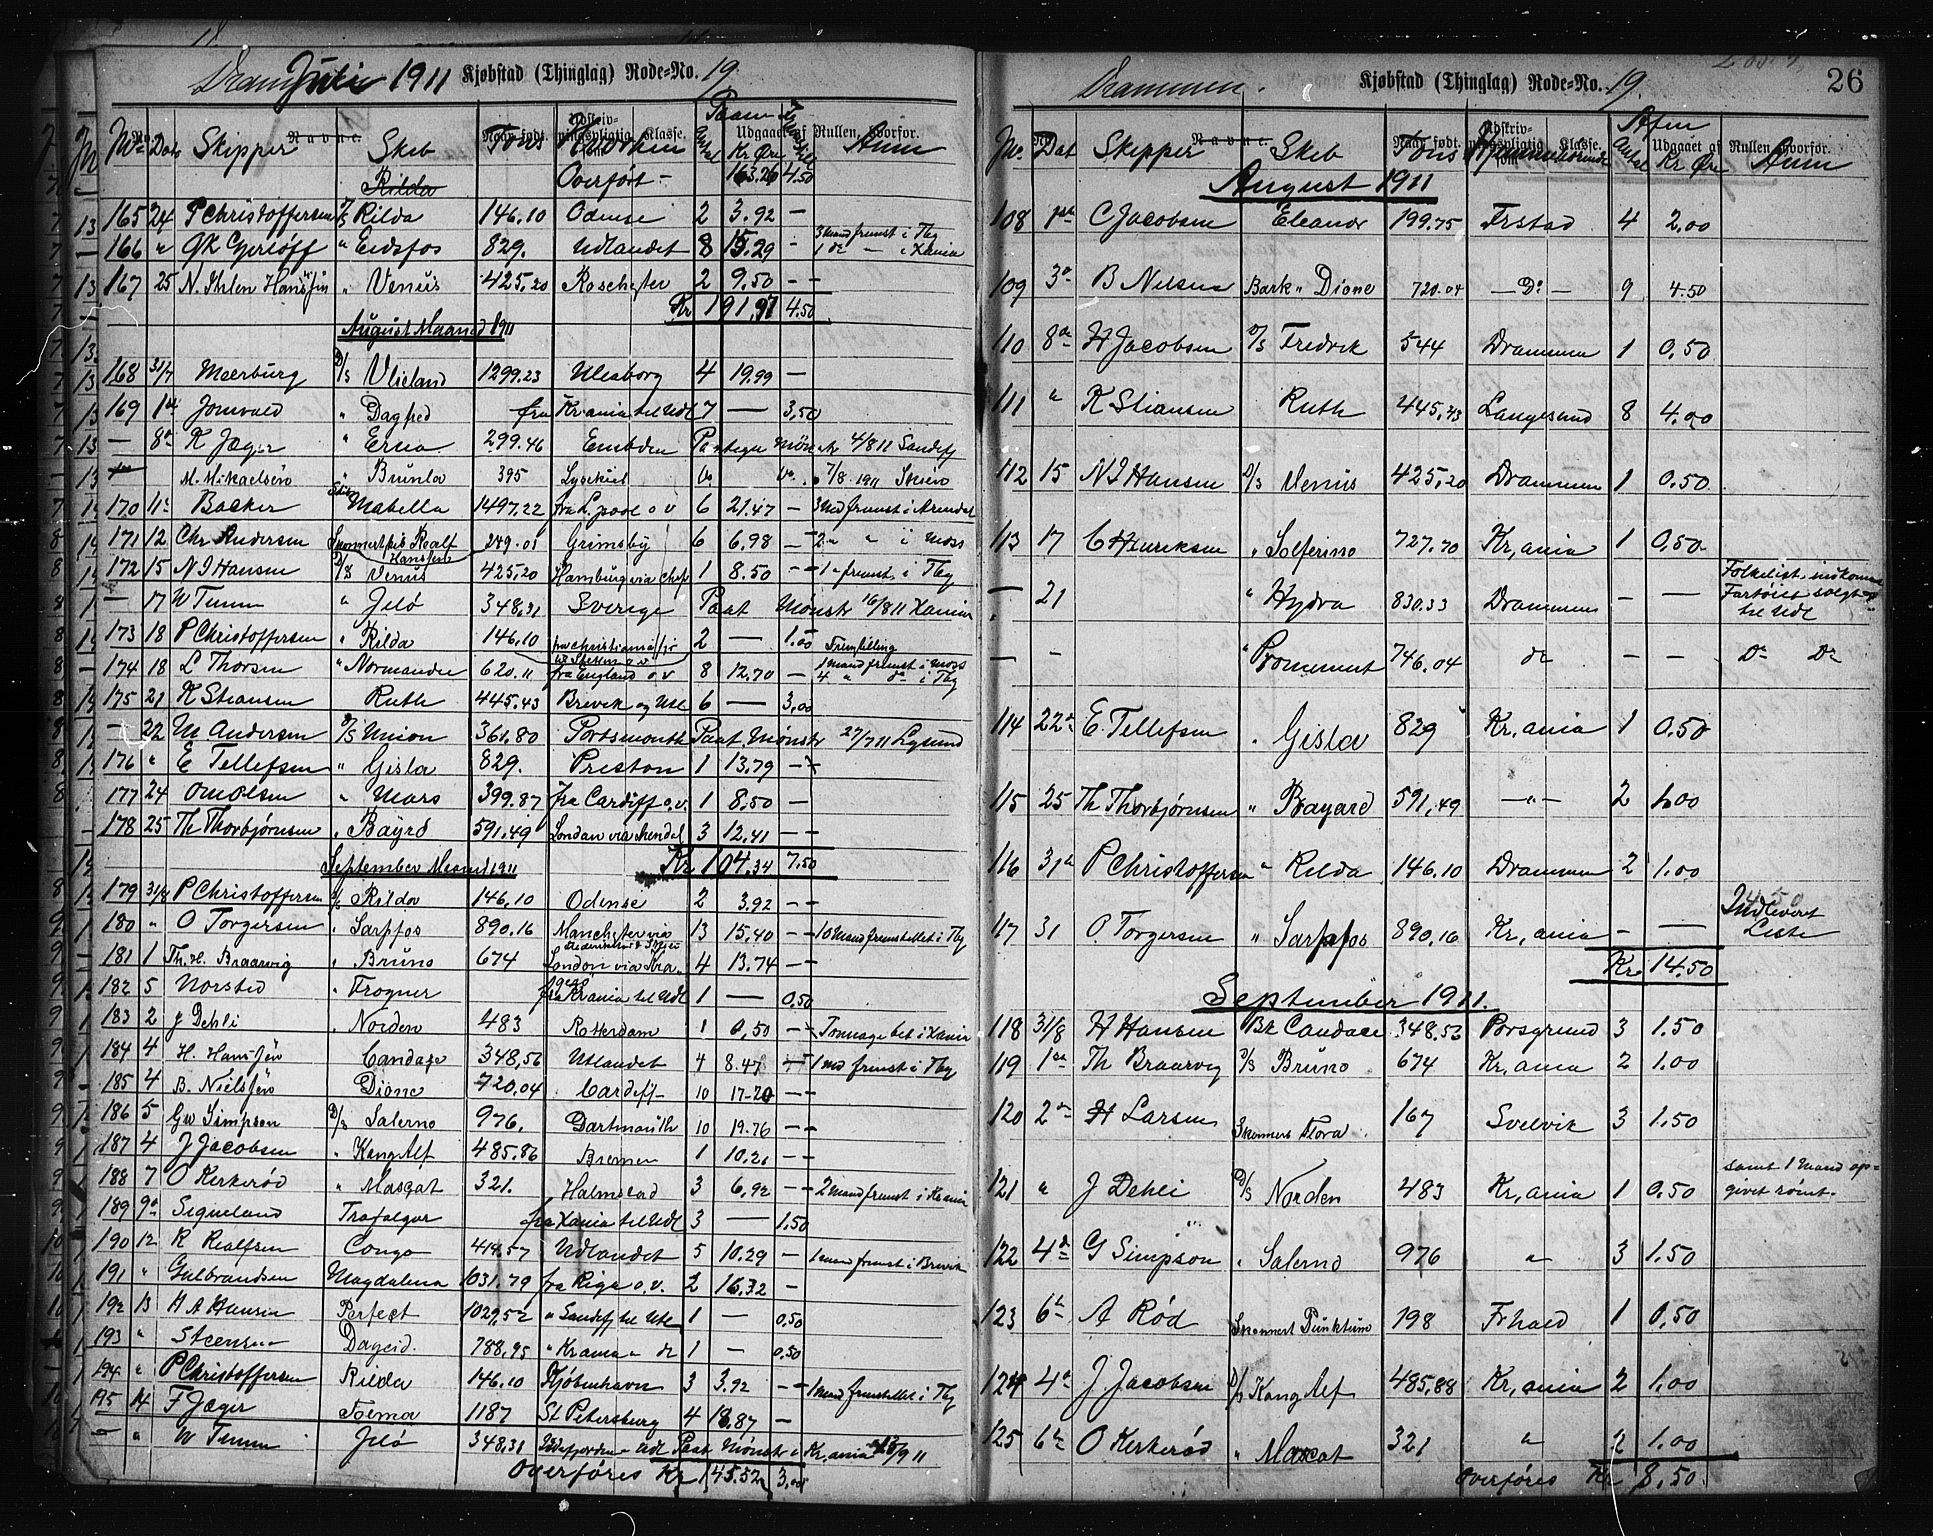 Drammen Juli 1911 Kjøbstad (Thinglag) Rode-No. 19.
No. Dato Skipper Skib Tons Hvorhen Antal Kr Øre Anm
Rilda Overført - 163.26 4.50
165 24 P Christoffersen D/S Rilda 146.10 Odense 2 3.92 —
166 " G K Gjerløff " Eidsfos 829. Udlandet 8 15.29 - 3 mand fremst i Tbg 1 do — i Xania
167 25 N. Ihlen Hansen " Venus 425.20 Rochester 2 9.50 —
Kr 191.97 4.50
August Maaned 1911
168 31/7 Meerburg D/S Vlieland 1299.23 Uleaborg 4 19.99 —
169 1ste Jomvold " Dagfred fra Krania til Udl 7 — 3,50
— 8de K Jæger " Erna 299.46 Embden Paategn Mønstr 4/8 11 Sandefj
M. Mikaelsen " Brunla 395 Lysekil do do 7/8 1911 Skien
170 11te Backer Mabella 1497.22 fra L.pool o v 6 21.47 — 3 Md fremst i Arendal
171 12 Chr Andersen Skonnertskib Realf Hansen 249.01 Grimsby 6 6,98 — 2 " " i Moss
172 15 N I Hansen D/S Venus 425.20 Hamburg via Chrs 1 8.50 — 1 " fremst. i Tbg
— 17 W Tumm " Jelø 348.31 Sverige Paat Mønstr 16/8 11 Xania
173 18 P Christoffersen " Rilda 146.10 fra Christianiafjr til Stettin o.v 2 — 1.00 Fremstilling
174 18 L Thorsen " Normandie 620.11 fra England o v 8 12.70 — 1 mand fremst i Moss 4 " do i Tbg
175 21 K Stiansen Ruth 445.43 Brevik og Udl 6 — 3,00
— 22 M Andersen D/S Union 361.80 Portsmouth Paat Mønstr 27/7 11 Lysund
176 " E Tellefsen " Gisla 829. Preston 1 13.79 —
177 24 Om Olsen " Mars 399.87 fra Cardiff o.v. 1 8,50 —
178 25 Th Thorbjørnsen " Bayrd 591.49 London via Arendal 3 12.41 —
Kr 104.34 7.50
September Maaned 1911
179 31/8 P Christoffersen D/S Rilda 146.10 Odense 2 3.92 —
180 " O Torgersen " Sarpfos 890.16 Manchester via 13 15.40 — 10 mand fremstillet i Tbg
181 1 Th. H. Braarvig " Bruno 674 London via Kra. 4 13.74 —
182 5 Norsted " Frogner fra Krania til Udl 1 — 0.50
183 2 J Dehli " Norden 483 Rotterdam 1 0,50 — Tonnage bet i Xania
184 4 H. Hansen Candace 348,56 Udlandet 4 8.47 — 1 md fremst i Tbg
185 4 B. Nielsen Dione 720.04 Cardiff 10 17.20 —
186 5 G W Simpson D/S Salerno 976. Dartmouth 10 19.76 —
187 4 J Jacobsen " Kong Alf 485.86 Bremen 1 10.21 —
188 7 O Kerkerød " Mascat 321. Halmstad 3 6.92 — 2 mand fremst i Krania
189 9de Sigveland Trafalgar fra Xania til Udl 3 — 1.50
190 12 R Realfsen Congo 414.57 Udlandet 5 10.29 — 1 mand fremst i Brevik
191 " Gulbrandsen Magdalena 1031.79 fra Riga o.v. 2 16.32 —
192 13 H A Hansen Perfect 1029,52 " Sandefj til Udl 1 — 0.50
193 " Steensen Dageid. 788,95 " Krania " do 1 — 0.50
194 " P Christoffersen Rilda 146.10 Kjøbenhavn 3 3.92 — 1 mand fremstillet i Tbg
195 14 F Jæger Toema 1187 St Petersburg 4 18.87 —
— " W Tumm Jelø 348.31 Udl Paat Mønstr i Kr,ania 13/9 11
Overføres Kr 145.52 3.00
Drammen. Kjøbstad (Thinglag) Rode-No. 19. 26
No. Dat Skipper Skib Tons Hjemmehørende Antal Kr Øre Anm
August 1911
108 1ste C Jacobsen Eleanor 199.75 Frstad 4 2.00
109 3de B Nilsen Bark " Dione 720.04 — Do — 9 4.50
110 8de H Jacobsen D/S Fredrik 544 Drammen 1 0.50
111 " K Stiansen Ruth 445,43 Langesund 8 4.00
112 15 N I Hansen D/S Venus 425,20 Drammen 1 0.50
113 17 C Henriksen " Solferino 727.70 Kr,ania 1 0.50
— 21 " Hydra 830.33 Drammen — — Folkelist. indkommet Fartøiet solgt til Udl
— — " Prominent 746.04 do — — Do Do
114 22de E. Tellefsen " Gisla 829 Kr,ania 1 0.50
115 25 Th Thorbjørnsen " Bayard 591,49 —"— 2 1.00
116 31te P Christoffersen " Rilda 146.10 Drammen 2 1.00
117 31 O Torgersen " Sarpfos 890,16 Kr,ania — — Indleveret Liste
Kr 14.50
September 1911.
118 31/8 H Hansen Bk Candace 348.56 Porsgrund 3 1.50
119 1ste Th Braarvig D/S Bruno 674 Kr,ania 2 1.00
120 2den H Larsen Skonnert Flora 167 Svelvik 3 1.50
121 " J Dehli D/S Norden 483 Kr,ania 1 0.50 samt 1 Mand opgivet rømt.
122 4de G Simpson " Salerno 976 " 3 1.50
123 6te A Rød Skonnert Punktum 198 Frhald 1 0.50
124 4de J Jacobsen D/S Kong Alf 485.88 Kr,ania 2 1.00
125 6te O Kerkerød " Mascat 321 " 2 1.00
Overføres Kr 8.50